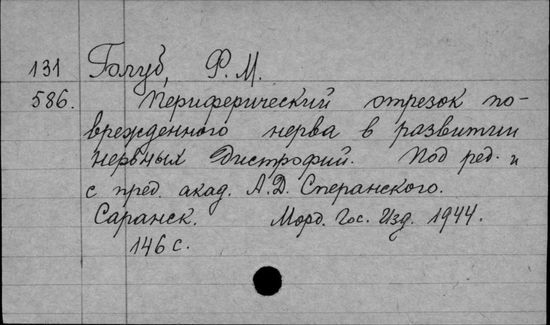 131 Голуб, Ф. М.
586. Периферический отрезок по-
врежденного нерва в развитии
нервных дистрофий. Под ред. и
с пред. акад. А. Д. Сперанского.
Саранск. Морд. Гос. Изд. 1944.
146 с.